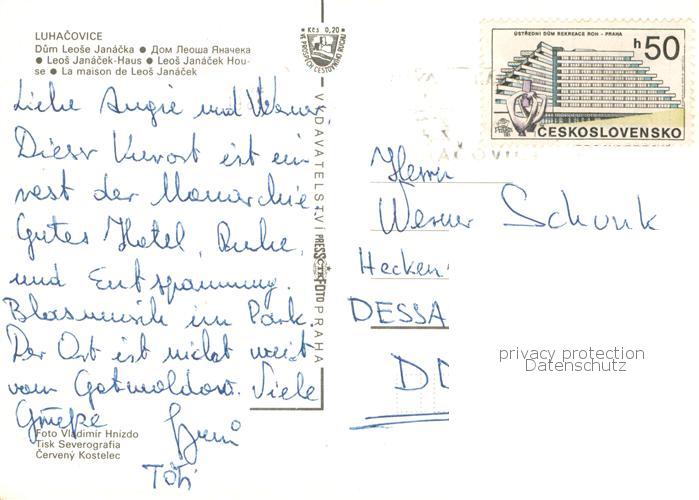 LUHAČOVICE
Dům Leoše Janáčka ● Дом Леоша Яначека
● Leoš Janáček-Haus ● Leoš Janáček Hou-
se ● La maison de Leoš Janáček
Kčs 0,20
Liebe Angie und Werner,
Dieser Kurort ist ein
rest der Monarchie
Gutes Hotel, Ruhe,
und Entspannung.
Blasmusik im Park.
Der Ort ist nicht weit
vom Gotwaldow. Viele
Grüße
Foto Vladimír Hnízdo
Tisk Severografia
Červený Kostelec
VYDAVATELSTVÍ PRESSFOTO PRAHA
ÚSTŘEDNÍ DŮM REKREACE ROH - PRAHA
h 50
ČESKOSLOVENSKO
Herrn
Werner Schunk
Hecken
DESSA
DD
privacy protection
Datenschutz